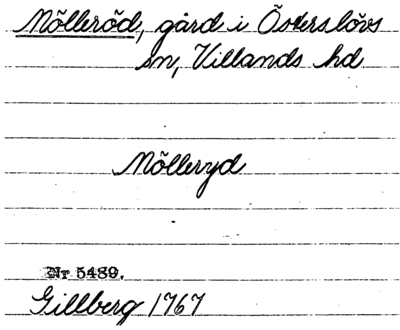 Mölleröd, gård i Österslövs
sn, Villands hd
Mölleryd
Nr 5489.
Gillberg 1767